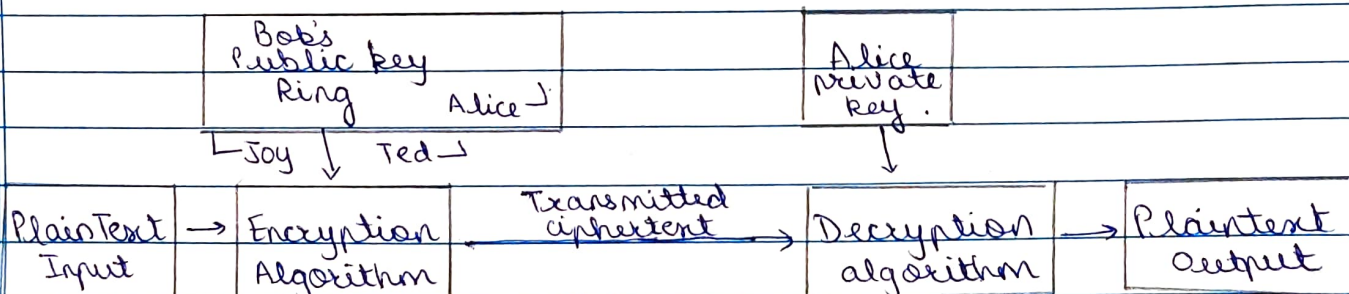 Bob's
Public key
Ring
Alice
Joy
Ted
Alice
private
key.
PlainText
Input
Encryption
Algorithm
Transmitted
ciphertext
Decryption
algorithm
Plaintext
Output